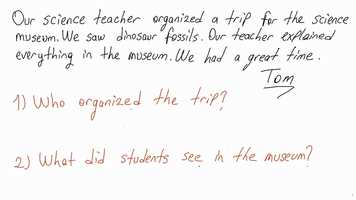 Our science teacher organized a trip for the science
museum. We saw dinosaur fossils. Our teacher explained
everything in the museum. We had a great time.
Tom
1) Who organized the trip?
2) What did students see in the museum?